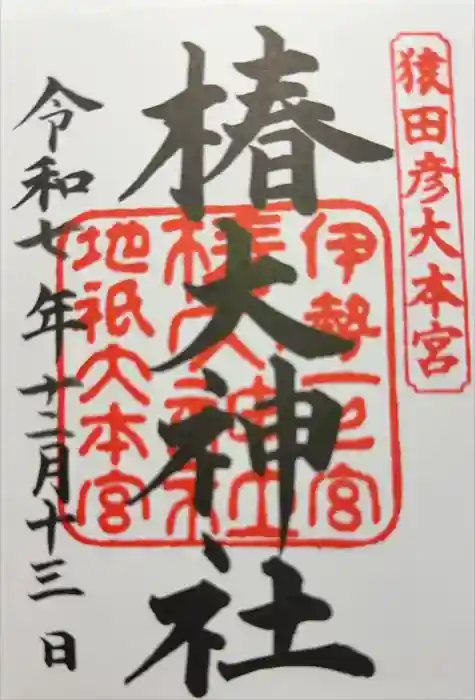 猿田彦大本宮
椿大神社
伊勢一宮
椿大神社
地祇大本宮
令和七年十二月十三日